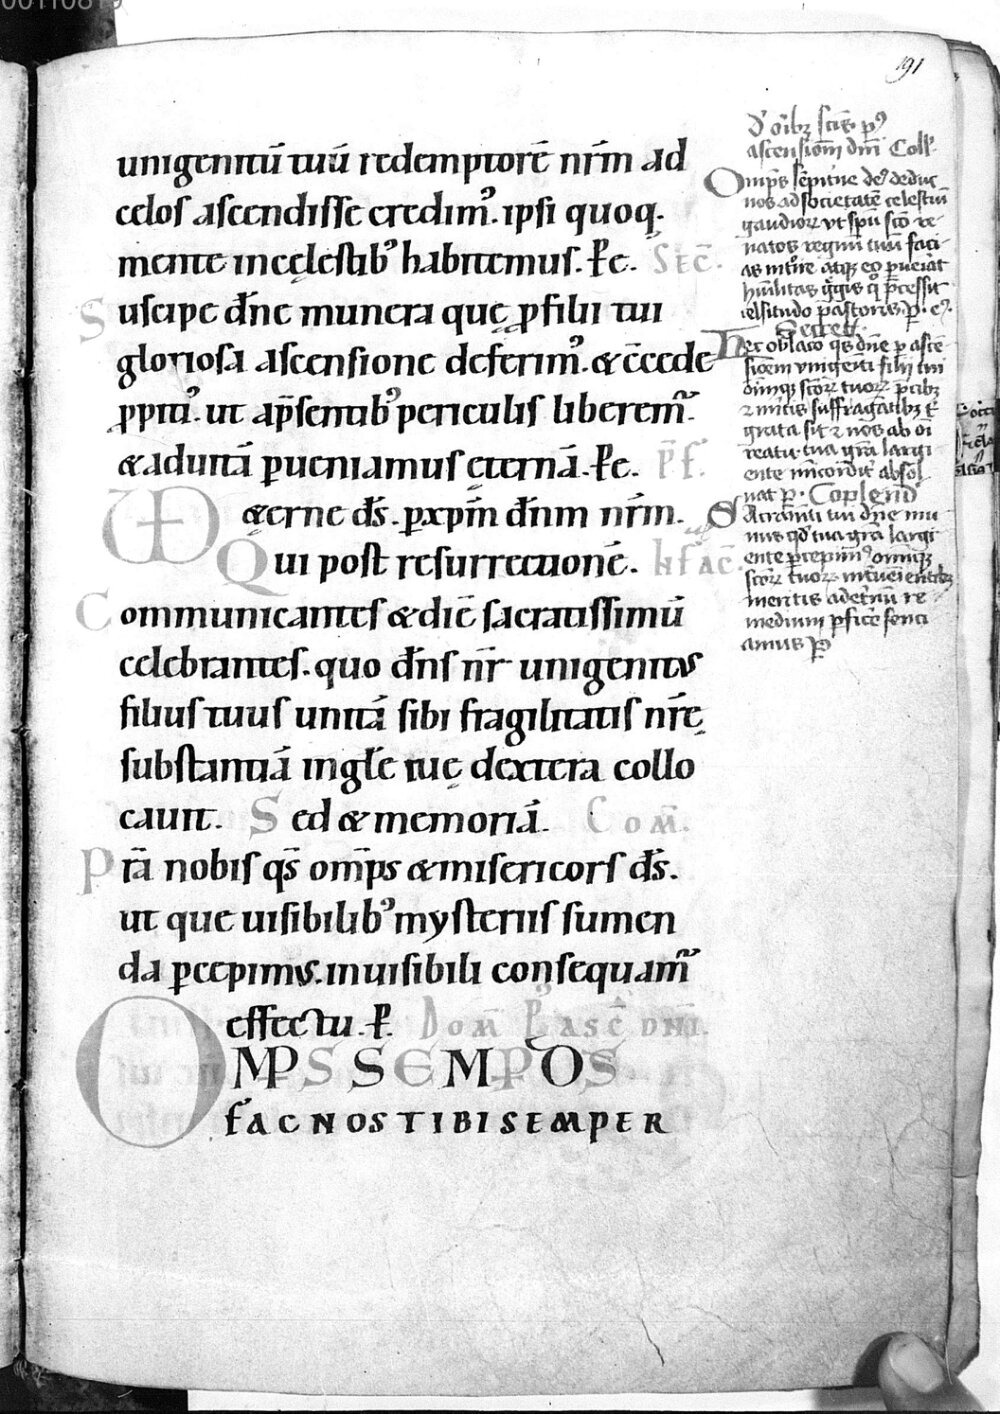 191
unigenitū tuū redemptorē nr̄m ad
celos ascendisse credim᾽. ipsi quoq.
mente in cęlestib᾽ habitemus. P̄e. SEC̄.
Suscipe dn̄e munera quę ꝓ filii tui
gloriosa ascensione deferim᾽. & c̄cede
ꝓpiti᾽. ut ap̄sentib᾽ periculis liberem᾽.
& ad uitā ꝑueniamus ęternā. P̄e. P̄F.
VD ęterne ds̄. ꝑ xp̄m dn̄m nr̄m.
Qui post resurrectionē. INF AC̄.
Communicantes & diē sacratissimū
celebrantes. quo dn̄s nr̄ unigenitus
filius tuus unitā sibi fragilitatis nr̄ę
substantiā in gl̄ę tuę dextera collo
cauit. Sed & memoriā. Com̄.
Pr̄a nobis qs̄ om̄ps & misericors ds̄.
ut que uisibilib᾽ mysteriis sumen
da ꝑcepimus. inuisibili consequam᾽
effectu. P̄. Dom̄ P᾽ ASC̄ DNI.
OMPS SEMPQS.
FAC NOS TIBI SEMPER
d᾽ oīb; scīs p᾽
ascensionē dn̄i Coll᾽
Omps sēpitne de᾽ deduc
nos ad societatē celestiū
gaudioꝝ vt spū scō re
natos regnū tuū faci
as int̄re atq; eo ꝑueiat
hūilitas g̊gis q̊ p̄cessit
celsitudo pastoris. p. e᾽.
Secret᾽
Hec oblato qs dn̄e ꝑ asce
sionem vnigeniti filij tui
oīmq; scōꝝ tuoꝝ p̄cibꝫ
⁊ mitis suffragātibꝫ t᾽
grata sit ⁊ nos ab oī
reatu. tua grā largi
ente mīcordit᾽ absol
uat p. Coplend᾽
Sacramēti tui dn̄e mu
nus qd᾽ tua grā largi
ente ꝑcepim᾽ omniūq;
scōꝝ tuoꝝ intueniēntibꝫ
meritis ad etnū re
medium ꝓfice senci
amus p